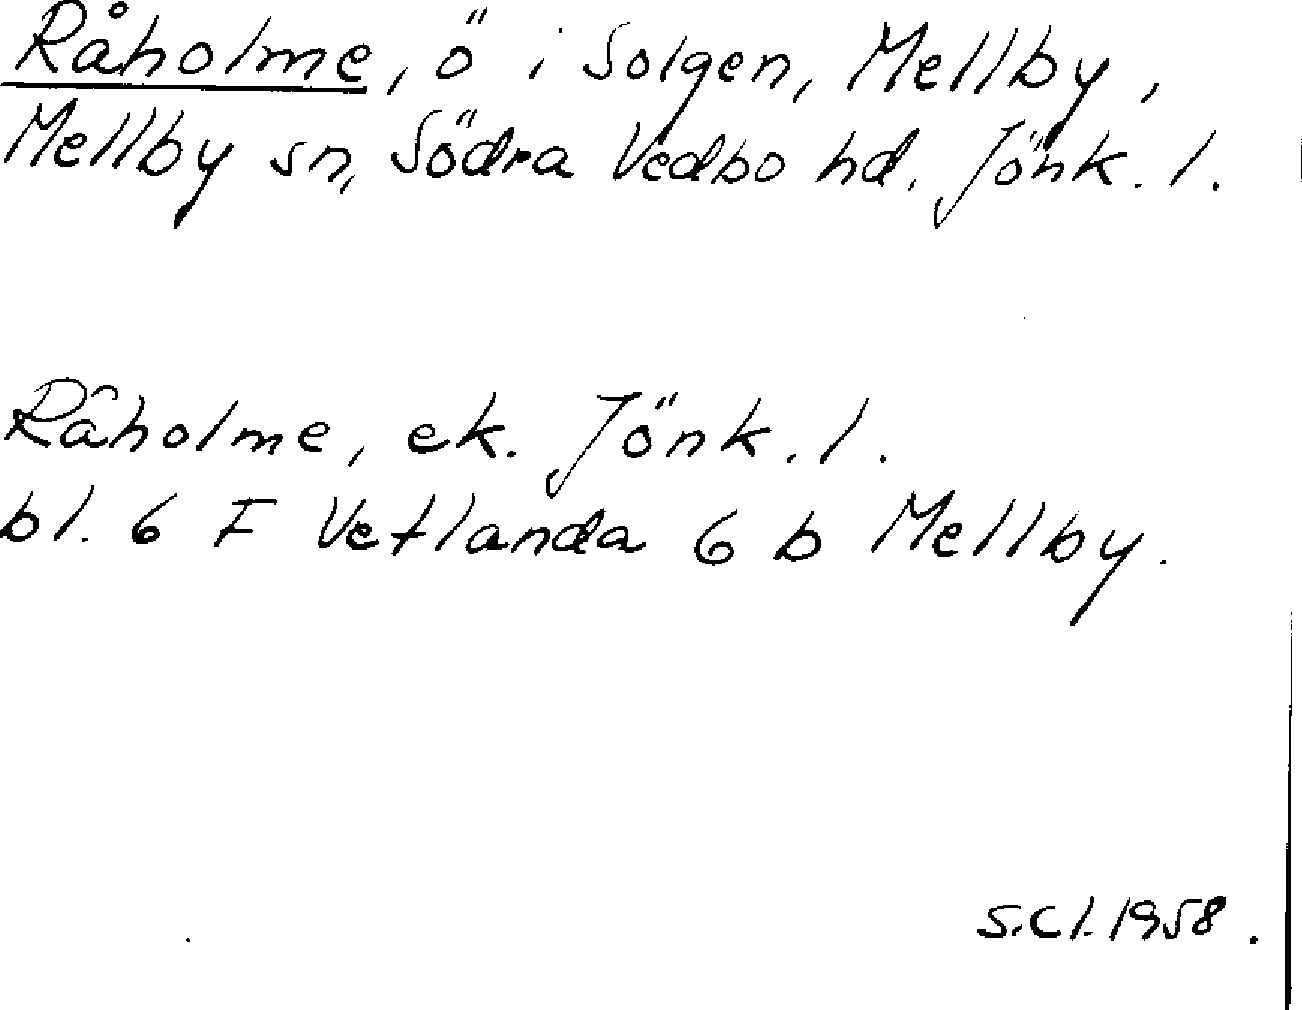 Råholme, ö i Solgen, Mellby,
Mellby sn, Södra Vedbo hd. Jönk. l.
Råholme, ek. Jönk. l.
bl. 6 F Vetlanda 6 b Mellby.
S.Cl. 1958.